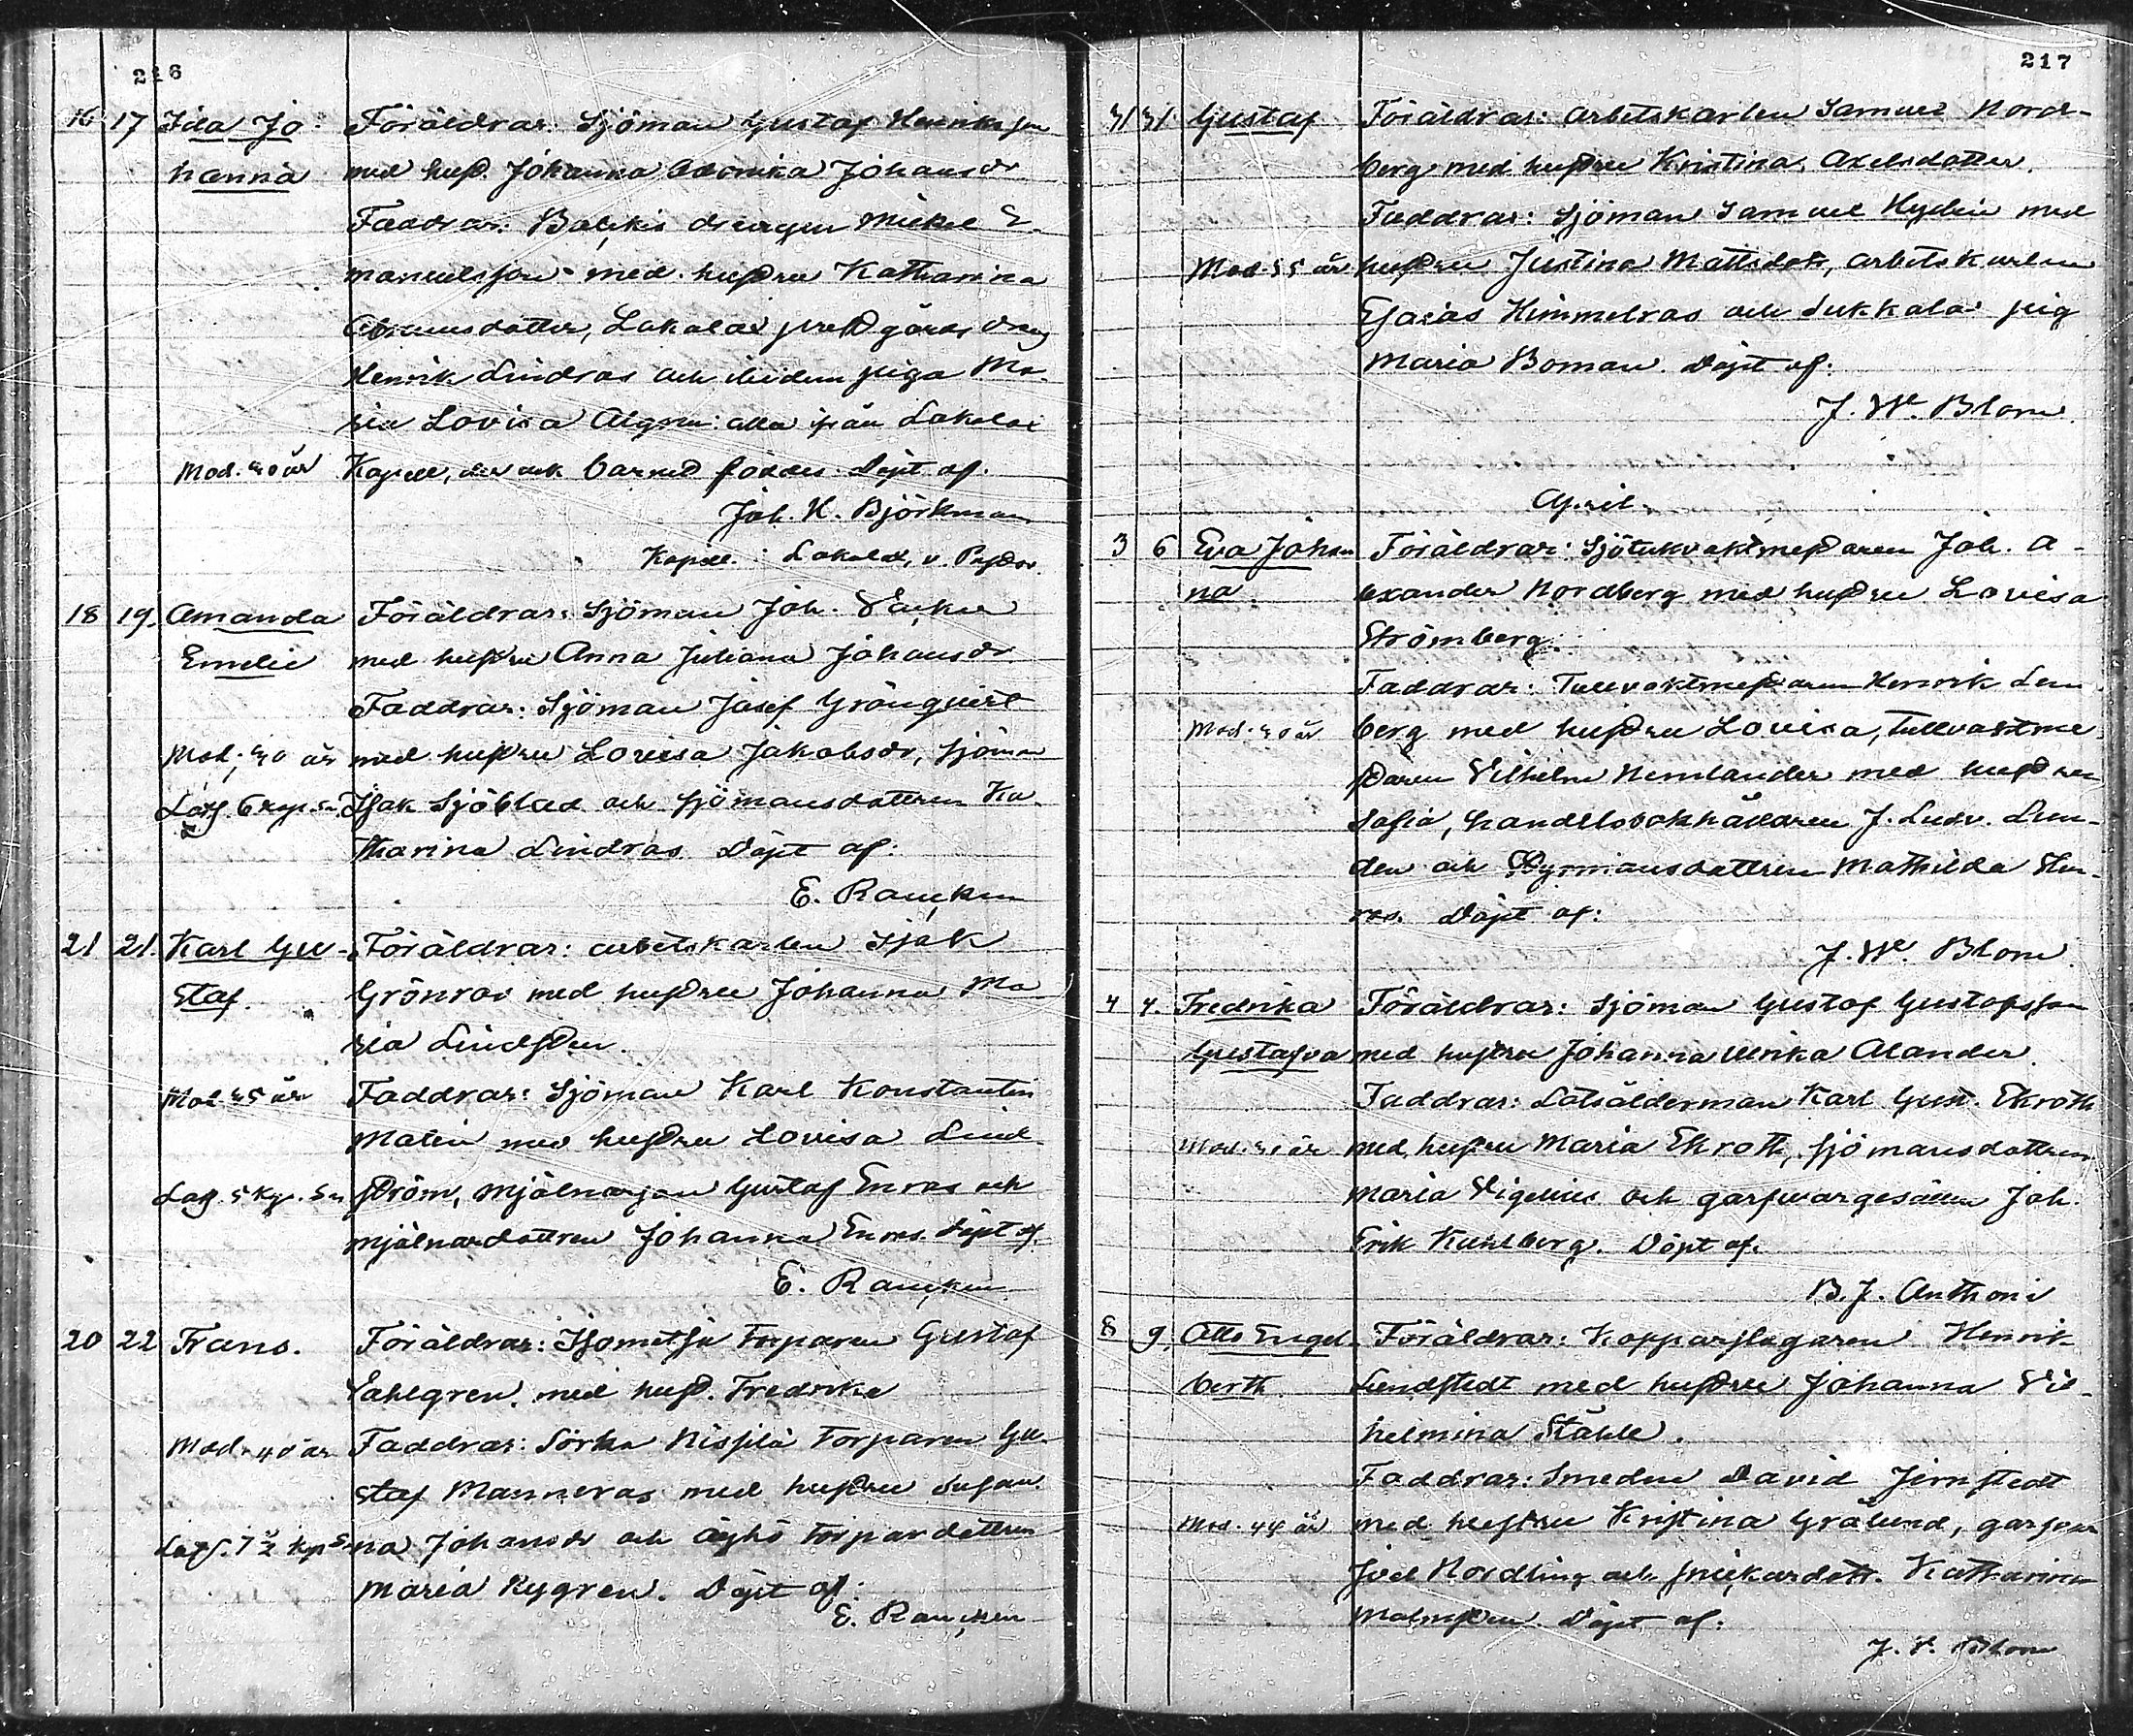 216
16 17 Ida Jo- Föräldrar: Sjöman Gustaf Henriksson
hanna med hust. Johanna Johansdr
Faddrar: drengen Mickel E-
manuelsson med hustru Katharina
Abramsdotter, Lokalax prestgårds dreng
Henrik Lindros och ibidem piga Ma-
ria Lovisa Algren alla ifrån Lokalax
Mod. 30 år Kapell, der ock barnet föddes. Döpt af.
Joh. H. Björkman
Kapell. i Lokalax, v. Pastor.
18 19. Amanda Föräldrar: Sjöman Joh.
Emelie med hustru Anna Juliana Johansdr
Faddrar: Sjöman Josef Grönqvist
Mod. 30 år med hustru Lovisa Jakobsdr, sjöman
6 Isak Sjöblad och sjömansdottren Ka-
tharina Lindros. Döpt af:
E. Rancken
21 21. Karl Gu- Föräldrar: arbetskarlen Isak
staf. Grönros med hustru Johanna Ma
ria Lindsten.
Mod. 35 år Faddrar: Sjöman Karl Konstantin
Malin med hustru Lovisa Lind-
5 ström, mjölnarson Gustaf Enros och
mjölnardottren Johanna Enros. Döpt af.
E. Rancken
20 22 Frans. Föräldrar: Torparen Gustaf
Sahlgren med hust. Fredrika
Mod. 40 år Faddrar: Torparen Gu-
staf Manneros med hustru Susan-
7½ na Johansdr och Torpardottren
Maria Nygren. Döpt af:
E. Rancken
217
31 31 Gustaf Föräldrar: Arbetskarlen Samuel Nord-
berg med hustru Kristina Axelsdotter.
Faddrar: Sjöman Samuel Hydén med
Mod. 35 år hustru Justina Mattsdotr, arbetskarlen
Esaias Himmelros och Sukkala pig
Maria Boman. Döpt af:
J. W. Blom.
April.
3 6 Eva Johan Föräldrar: Sjötullvaktmestaren Joh. A-
na lexander Nordberg med hustru Lovisa
Strömberg.
Faddrar: Tullvaktmestaren Henrik
Mod. 30 år berg med hustru Lovisa, tullvaktme-
staren Vilhelm Hemlander med hustru
Sofia, handelsbokhållaren J. Ludv. Lin-
den och Styrmansdottren Mathilda
Döpt af:
J. W. Blom.
4 4. Fredrika Föräldrar: Sjöman Gustaf Gustafsson
Gustafva med hustru Johanna Ulrika Alander
Faddrar: Lotsålderman Karl Gust. Ekroth
Mod. 31 år med hustru Maria Ekroth, sjömansdottren
Maria Vigelius och garfvargesällen Joh.
Erik Kuhlberg. Döpt af.
B. J. Anthoni
8 9. Otto Engel- Föräldrar: Kopparslagaren Henrik
berth. Lundstedt med hustru Johanna Vil-
helmina Ståhle.
Faddrar: Smeden David Jernstedt
Mod. 44 år med hustru Kristina Grälund, garfvar
Joel Nordling och snickardott. Katharina
Malmsten. Döpt af:
J. W. Blom